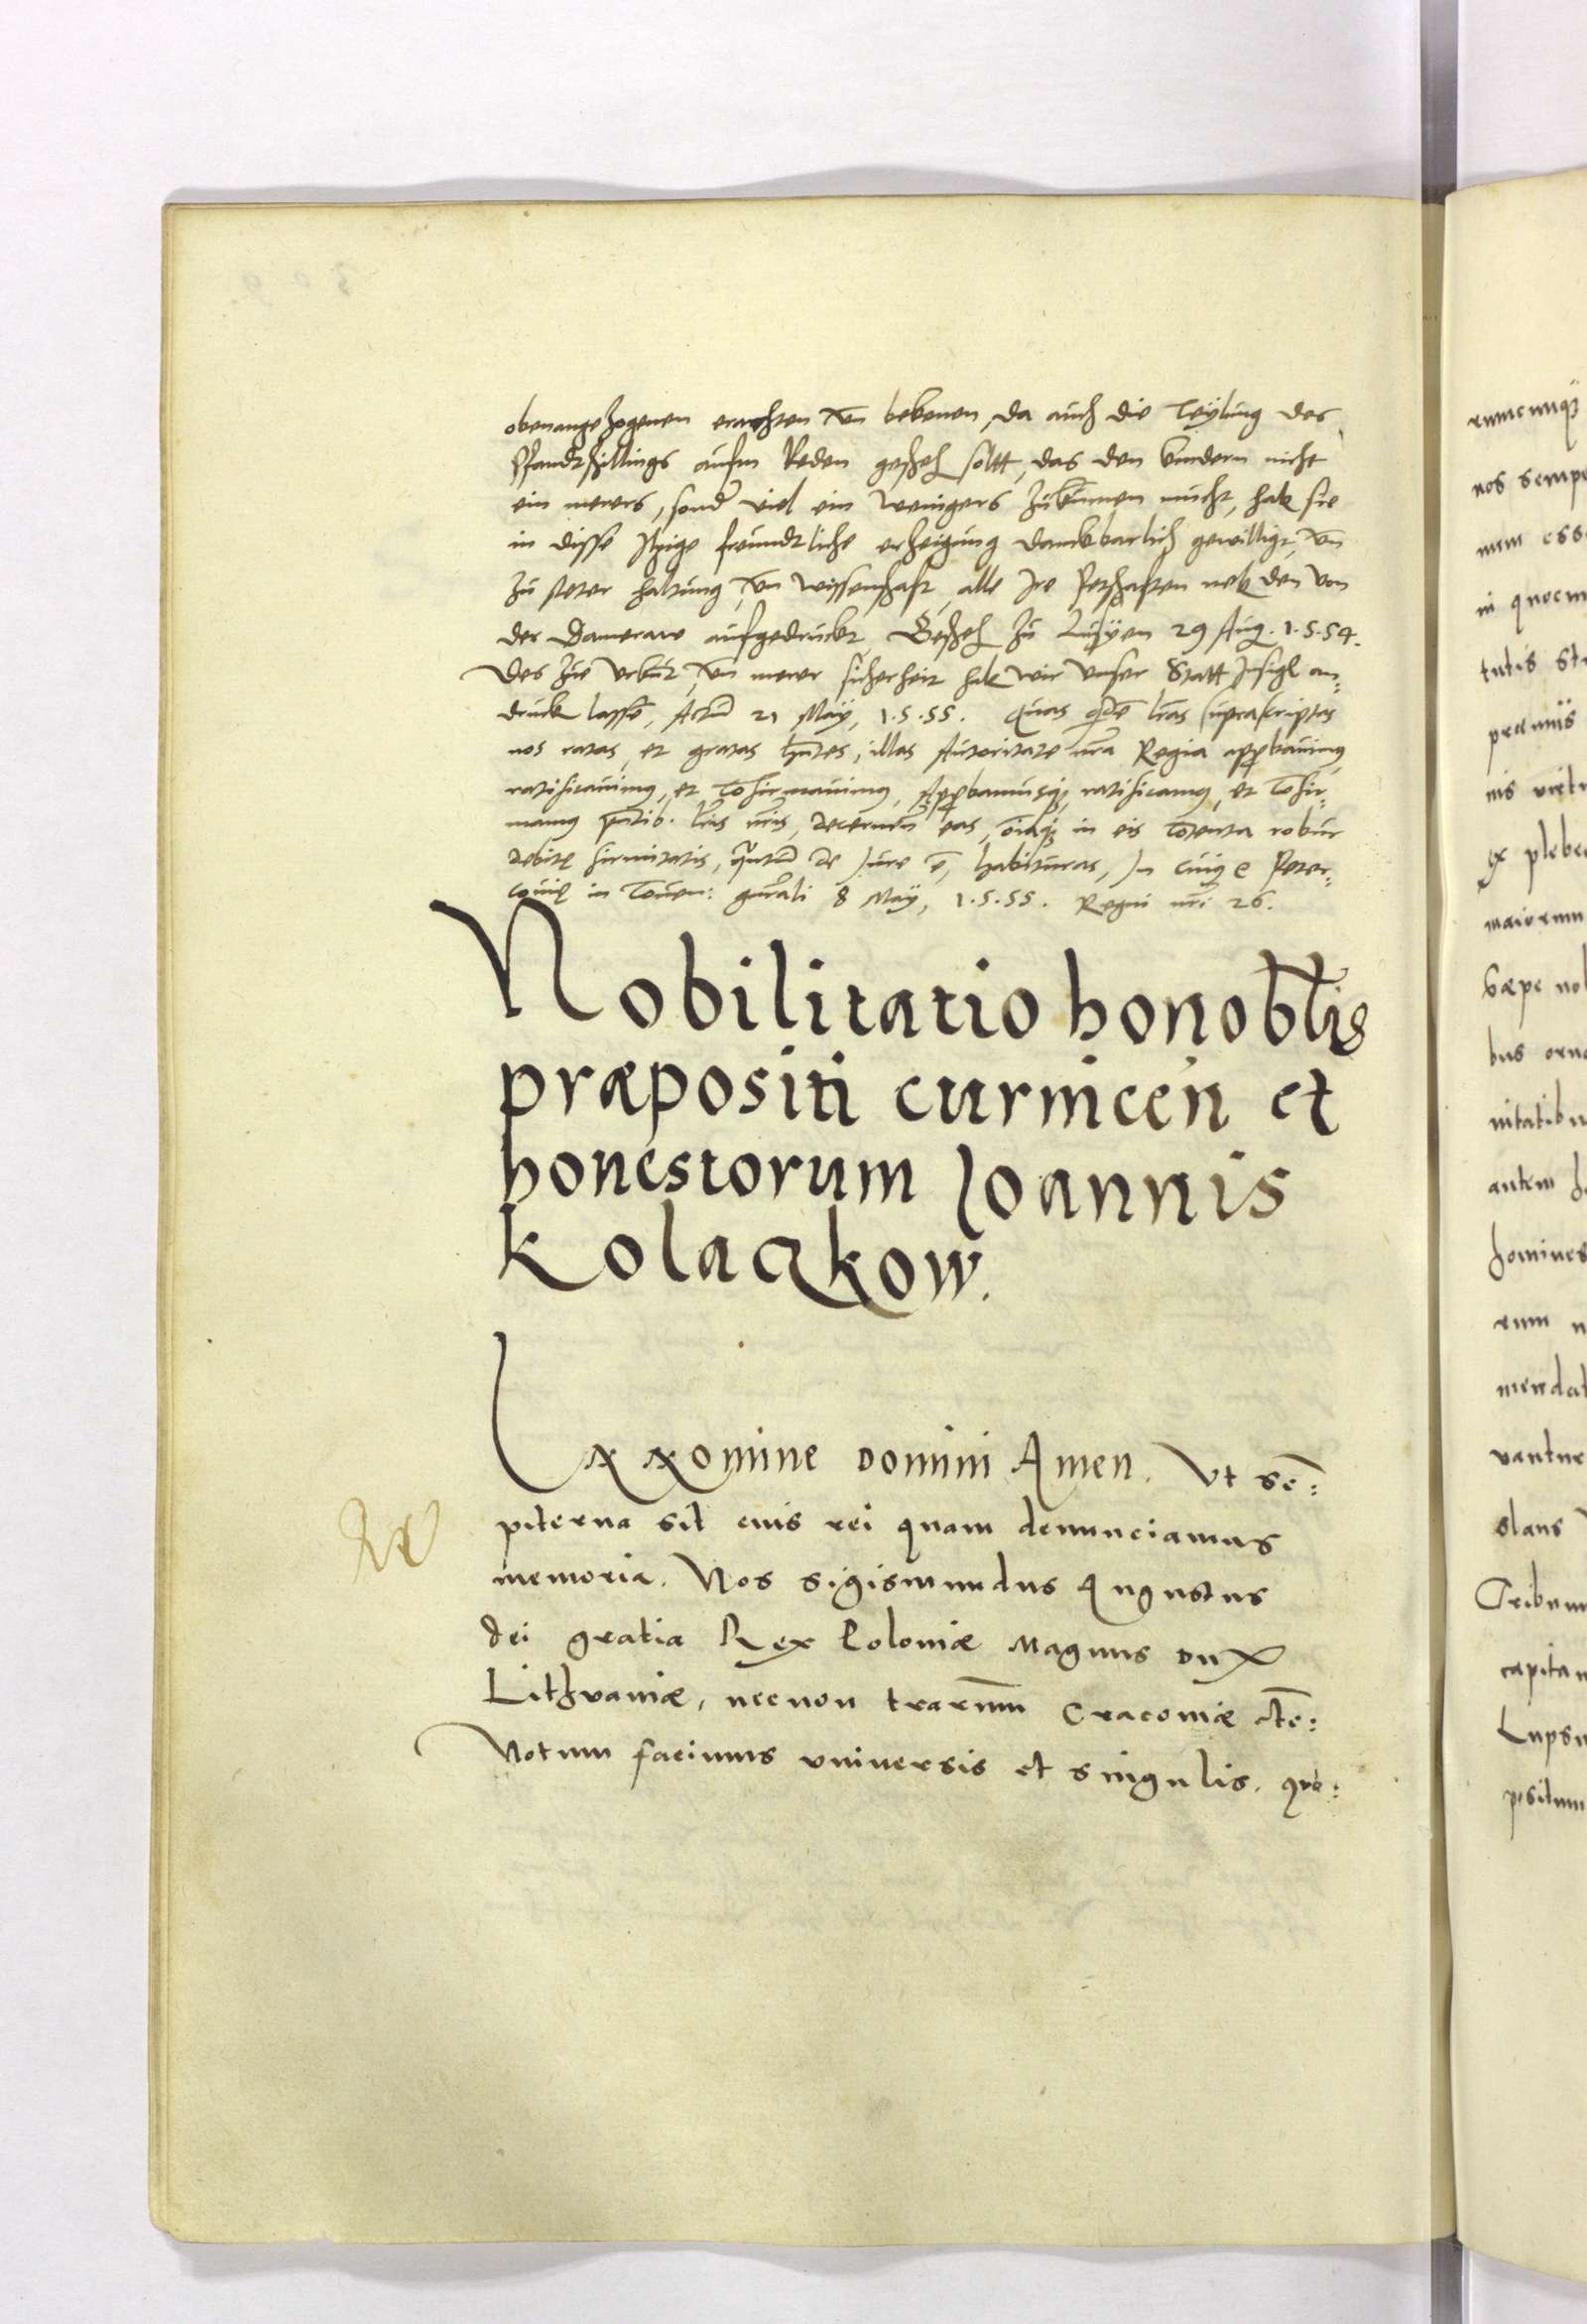 obenangezogenen erachten un bekenen, da auch die Teylung des
Pfandtschillings aufm Reden geschech soltt, das den kindern nicht
ein merers, sonder viel ein Wenigers zukumen mucht, hab sie
in disse Itzige freundtliche erzeigung danckbarlich gewilligt, un
zu steter haltung, un wissenschaft, alle Ire Petschafften neb den von
der Dameraw aufgedruckt, Geschech zu 29 Aug. 1.5.54.
Des zue urkut, un merer sicherheit hab wir Unser Statt Insigl an=
druck lassē, Actū 21 May, 1.5.55. Quas qdē lras suprascriptas
nos ratas, et gratas hntes, illas Autoritate nra Regia approbavimus,
ratificavimus, et cofirmavimus, Approbamusq, ratificamus, et cofir=
mamus pntib. lris nris, decernen eas, oiaq in eis contenta robur
debitę firmitatis, qntū de Jure ē, habituras, In cuius e Petr=
covię in Conven: gnrali 8 May, 1.5.55. Regni nri 26.
Nobilitatio honoblis
præpositi curnicen et
honestorum Joannis
Kolaczkow.
In nomine Domini Amen. Vt sē=
piterna sit eius rei quam denunciamus
memoria. Nos Sigismundus Augustus
dei gratia Rex Poloniæ Magnus Dux
Lithvaniæ, necnon trarum Cracoviæ etc:
Notum facimus vniversis et singulis. quo=
rumcunq
nos sempe
num esse
in quocun
tutis st
præmiis
nis virtu
ex plebe
maiorum
Sæpe nob
bus orna
nitatibu
autem h
homines
rum n
mendat
vantur
slaus
Tribun
capitan
Lupsu
positum